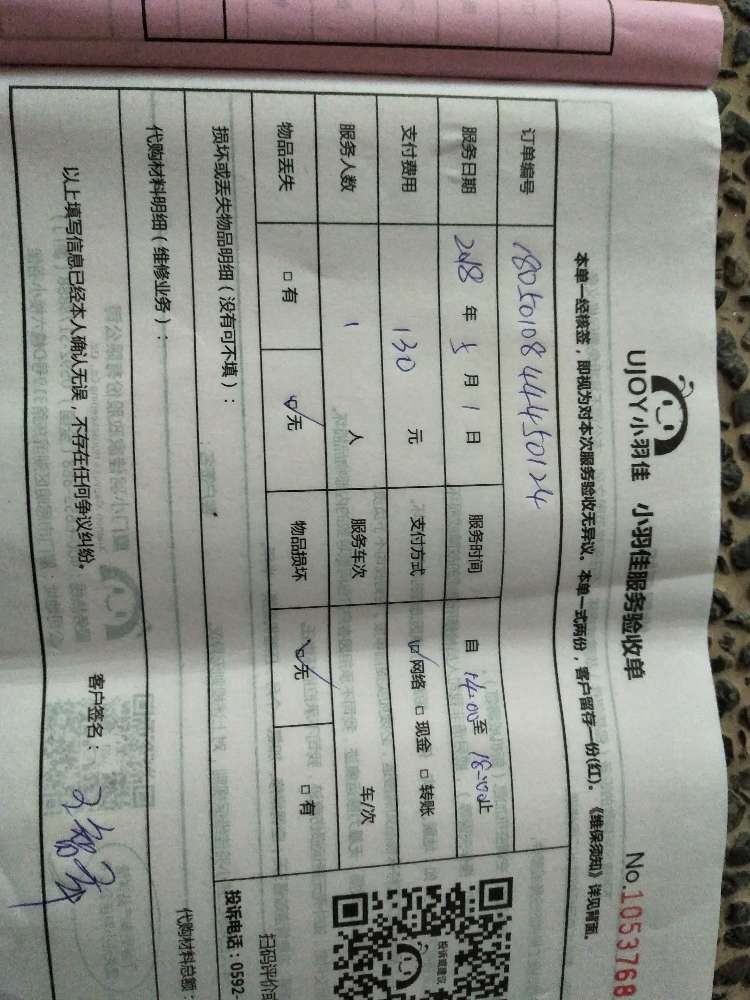 UJOY小羽佳 小羽佳服务验收单 No.1053768
本单一经核签，即视为对本次服务验收无异议。本单一式两份，客户留存一份(红)。《维保须知》详见背面。
订单编号 18050108444450124
服务日期 2018年5月1日 服务时间 自14:00至18:00止
支付费用 130元 支付方式 网络 现金 转账
服务人数 1人 服务车次 车/次
物品丢失 有 无 物品损坏 无 有
损坏或丢失物品明细（没有可不填）：
代购材料明细（维修业务）：
代购材料总额：
以上填写信息已经本人确认无误，不存在任何争议纠纷。 客户签名：
投诉或建议
扫码评价
投诉电话：0592-